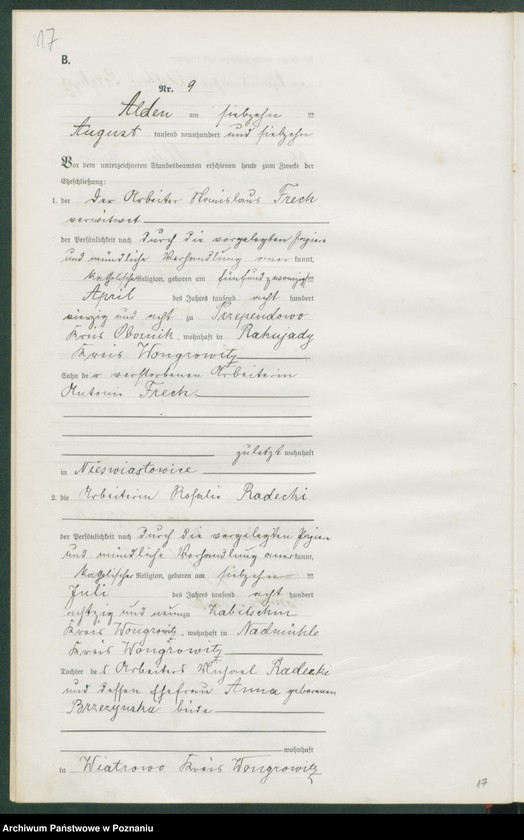 17
B.
Nr. 9
Alden am siebzehn ten
August tausend neunhundert und siebzehn
Vor dem unterzeichneten Standesbeamten erschienen heute zum Zwecke der
Eheschließung:
1. der Der Arbeiter Stanislaus Frech
verwitwet
der Persönlichkeit nach durch die vorgelegten Papiere
und mündliche Verhandlung anerkannt,
katholischer Religion, geboren am fünfundzwanzigsten
April des Jahres tausend acht hundert
vierzig und acht zu
Kreis Obornik, wohnhaft in Rakujady
Kreis Wongrowitz
Sohn der verstorbenen Arbeiterin
Antonie Frech
zuletzt wohnhaft
in Nieswiastowice
2. die Arbeiterin Rosalie Radecki
der Persönlichkeit nach durch die vorgelegten Papiere
und mündliche Verhandlung anerkannt,
katholischer Religion, geboren am siebzehn ten
Juli des Jahres tausend acht hundert
achtzig und neun zu Zabitschin
Kreis Wongrowitz, wohnhaft in Nadmühle
Kreis Wongrowitz
Tochter des Arbeiters Michael Radecki
und dessen Ehefrau Anna geborenen
Brzezynska beide
wohnhaft
in Wiatrowo Kreis Wongrowitz
17
Archiwum Państwowe w Poznaniu